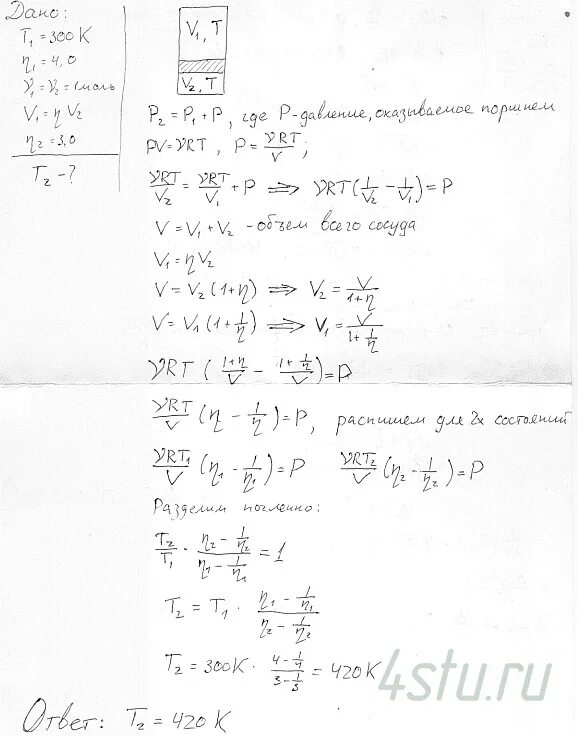 Дано:
T₁ = 300 K
η₁ = 4,0
ν₁ = ν₂ = 1 моль
V₁ = η V₂
η₂ = 3,0
T₂ - ?
V₁, T
V₂, T
P₂ = P₁ + P, где P - давление, оказываемое поршнем
PV = νRT, P = νRT/V;
νRT/V₂ = νRT/V₁ + P ⟹ νRT(1/V₂ - 1/V₁) = P
V = V₁ + V₂ - объем всего сосуда
V₁ = η V₂
V = V₂(1+η) ⟹ V₂ = V/(1+η)
V = V₁(1+1/η) ⟹ V₁ = V/(1+1/η)
νRT((1+η)/V - (1+1/η)/V) = P
νRT/V (η - 1/η) = P, распишем для 2х состояний
νRT₁/V (η₁ - 1/η₁) = P νRT₂/V (η₂ - 1/η₂) = P
Разделим почленно:
T₂/T₁ · (η₂ - 1/η₂)/(η₁ - 1/η₁) = 1
T₂ = T₁ · (η₁ - 1/η₁)/(η₂ - 1/η₂)
T₂ = 300K · (4 - 1/4)/(3 - 1/3) = 420K
4stu.ru
Ответ: T₂ = 420 K